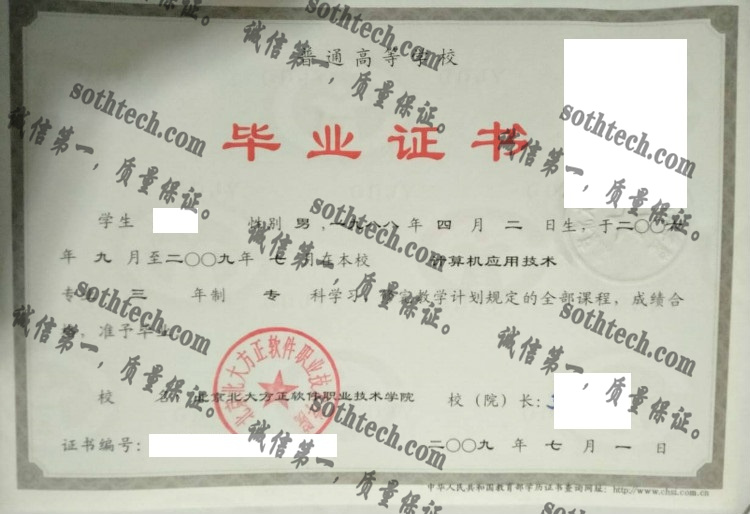 普通高等学校
毕业证书
学生 性别 男，一九八八年 四 月 二 日生，于二〇〇六
年 九 月至二〇〇九年 七 月在本校 计算机应用技术
专业 三 年制 专 科学习 教学计划规定的全部课程，成绩合
格，准予毕业
校 名 北京北大方正软件职业技术学院 校（院）长：
证书编号： 二〇〇九 年 七 月 一 日
中华人民共和国教育部学历证书查询网址：http://www.chsi.com.cn
北京北大方正软件职业技
sothtech.com
诚信第一，质量保证。
sothtech.com
诚信第一，质量保证。
sothtech.com
诚信第一，质量保证。
sothtech.com
诚信第一，质量保证。
sothtech.com
诚信第一，质量保证。
sothtech.com
诚信第一，质量保证。
sothtech.com
诚信第一，质量保证。
sothtech.com
诚信第一，质量保证。
sothtech.com
诚信第一，质量保证。